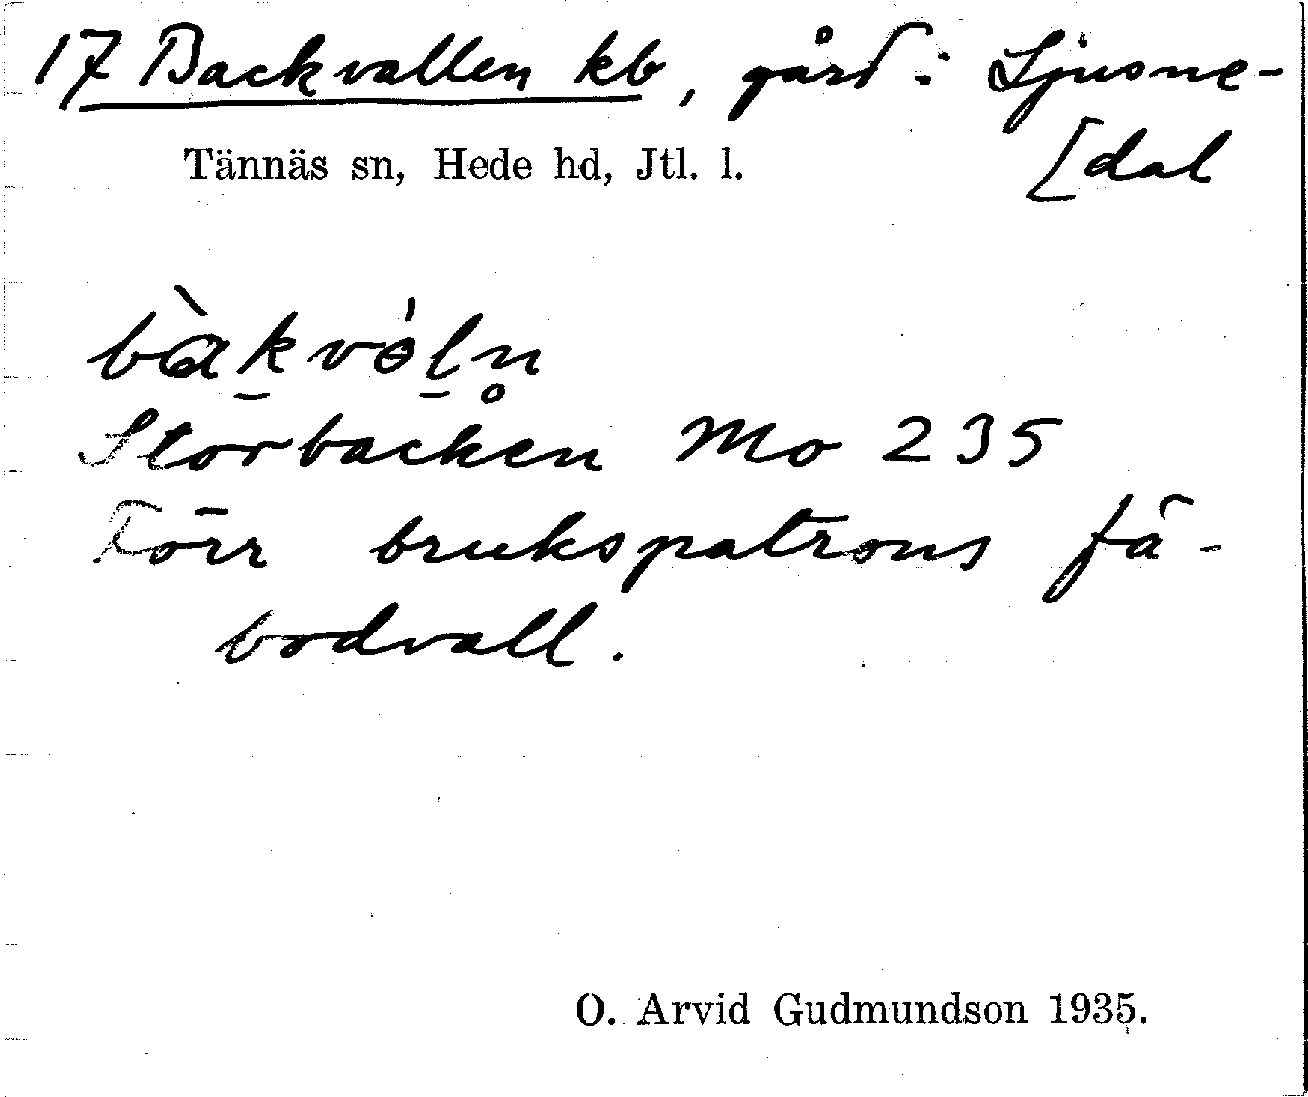 17 Backvallen kb, gård: Ljusne-
[dal
Tännäs sn, Hede hd, Jtl. l.
bàk̠vɵ́l̠n̥
Storbacken Mo 235
Förr brukspatrons fä-
bodvall.
O. Arvid Gudmundson 1935.